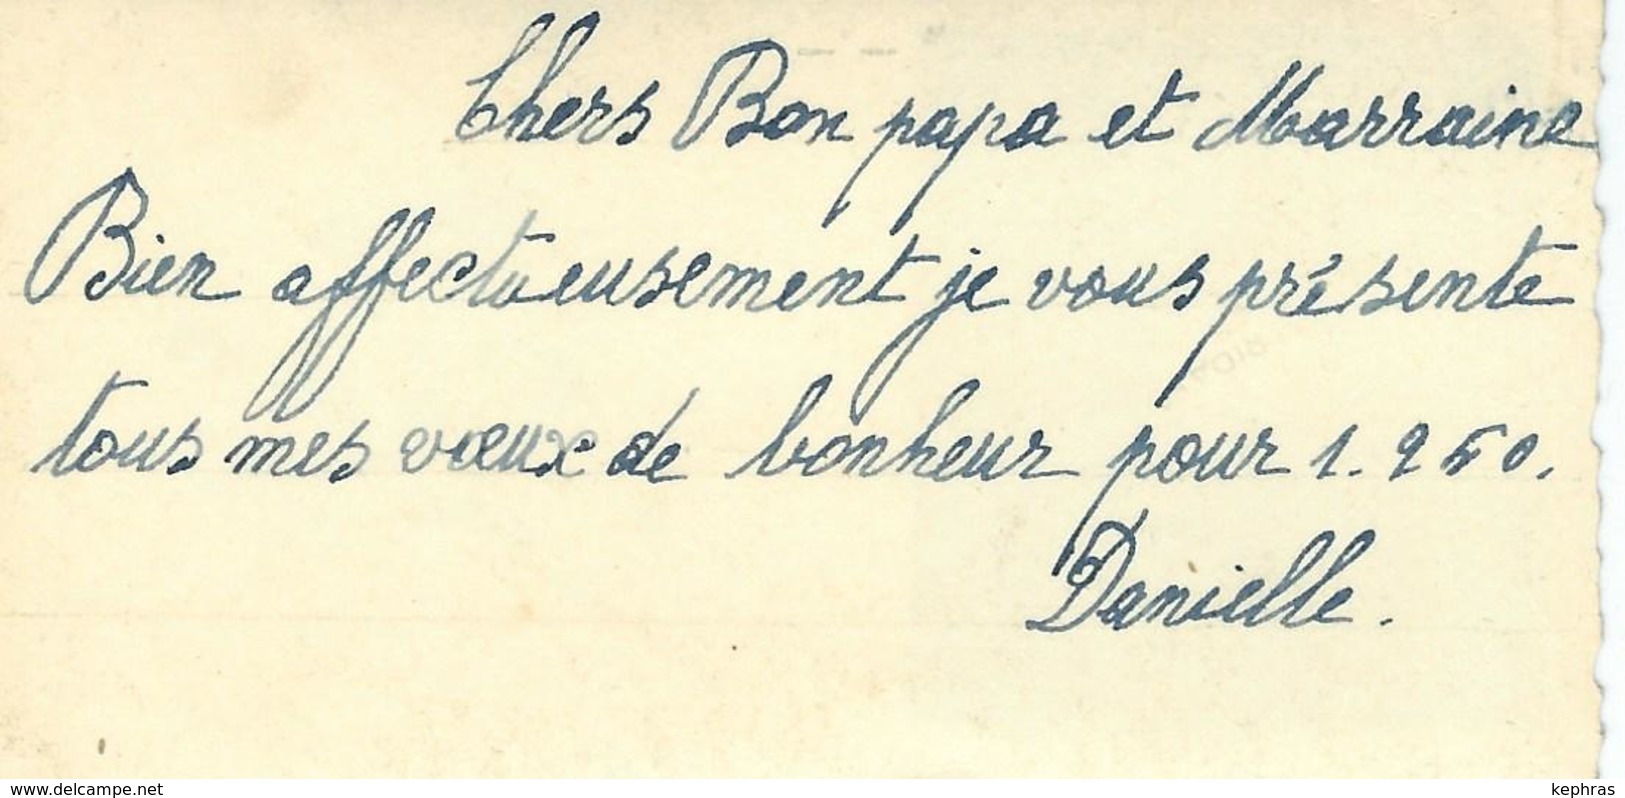 Chers Bon papa et Marraine
Bien affectueusement je vous présente
tous mes vœux de bonheur pour 1.950.
Danielle.
www.delcampe.net
kephras